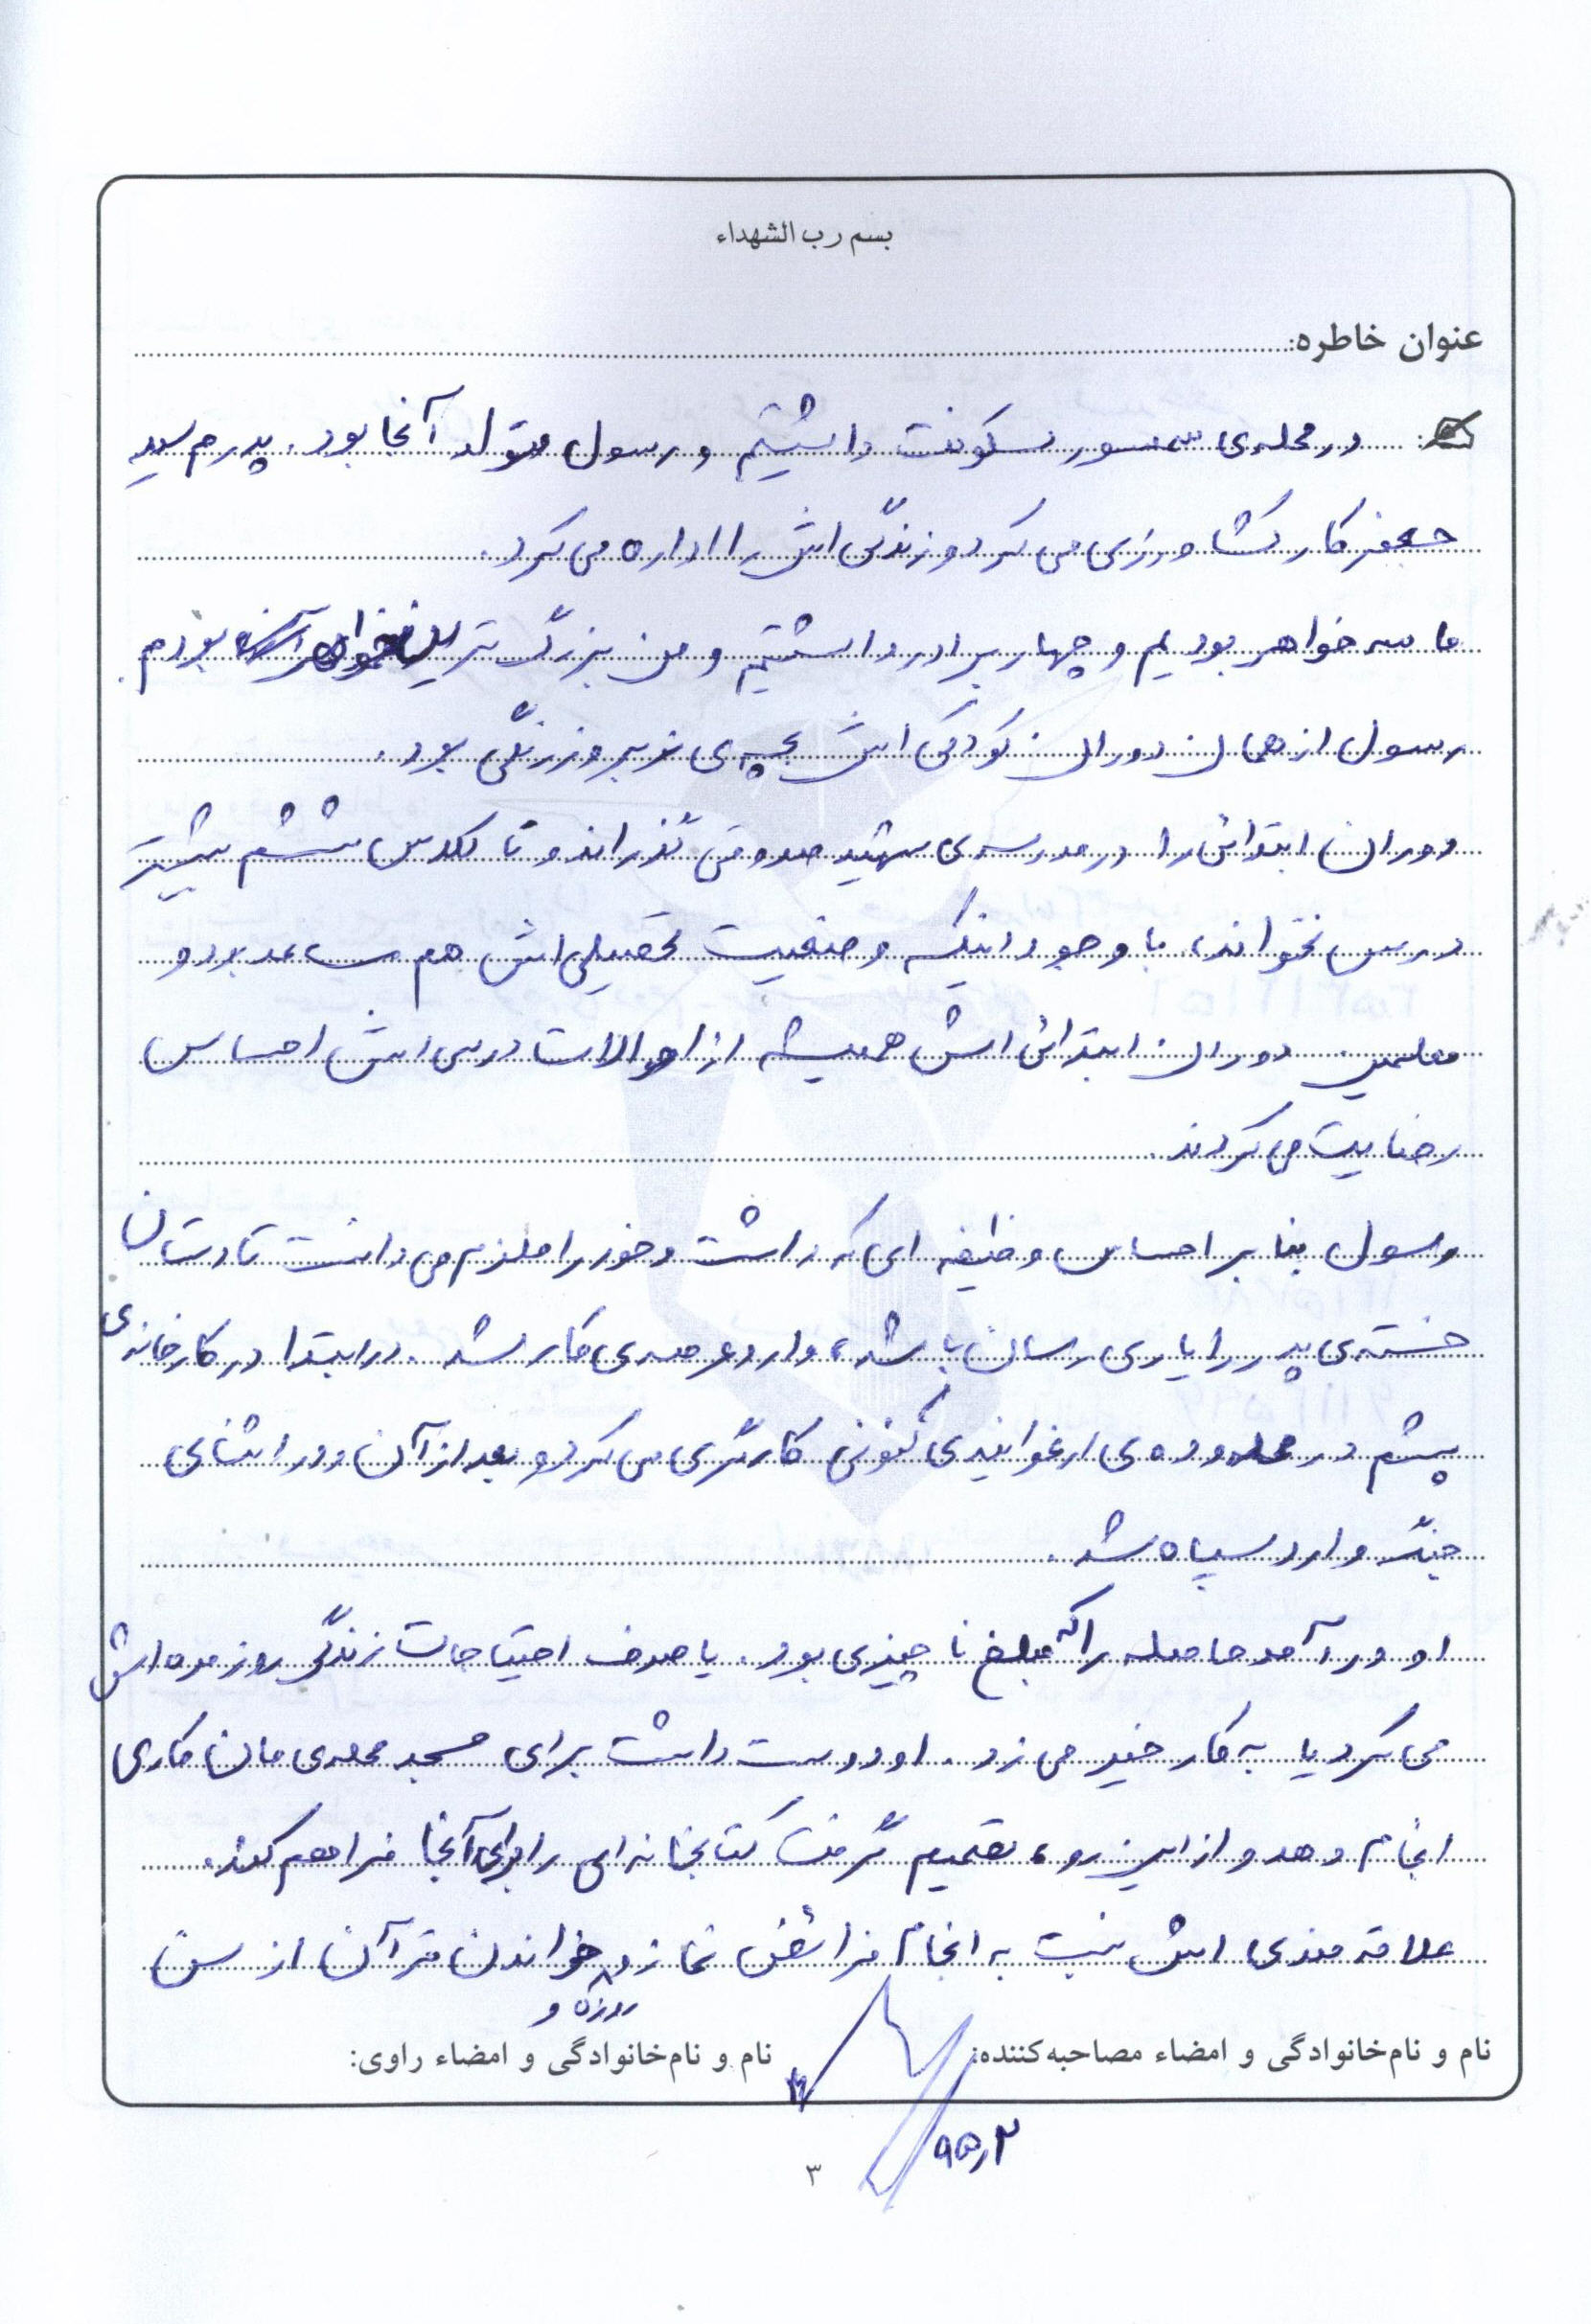 بسم رب الشهداء
عنوان خاطره:
در محله‌ی سمسور سکونت داشتیم و رسول متولد آنجا بود. پدرم سید
جعفر کار کشاورزی می کرد و زندگی اش را اداره می کرد.
ما سه خواهر بودیم و چهار برادر داشتیم و من بزرگ ترین خواهر بودم.
رسول از همان دوران کودکی اش بچه‌ی زبر و زرنگی بود.
دوران ابتدائی را در مدرسه‌ی شهید صدوقی گذراند و تا کلاس ششم بیشتر
درس نخواند، با وجود اینکه وضعیت تحصیلی اش هم مساعد بود و
معلمین دوران ابتدائی اش همیشه از احوالات درسی اش احساس
رضایت می کردند.
رسول بنا بر احساس وظیفه ای که داشت و خود را ملزم می دانست تا دستان
خسته‌ی پدر را یاری رسان باشد، وارد عرصه‌ی کار شد. در ابتدا در کارخانه‌ی
پشم در محدوده‌ی ارغوانیه‌ی کنونی کارگری می کرد و بعد از آن و در اثنای
جنگ وارد سپاه شد.
او درآمد حاصله را که مبلغ ناچیزی بود. یا صرف احتیاجات زندگی روزمره اش
می کرد یا به کار خیر می زد. او دوست داشت برای مسجد محله‌ی مان کاری
انجام دهد و از این رو، تصمیم گرفت کتابخانه ای را برای آنجا فراهم کند.
علاقه مندی اش نسبت به انجام فرائض نماز و روزه و خواندن قرآن از سن
نام و نام‌خانوادگی و امضاء مصاحبه‌کننده: نام و نام‌خانوادگی و امضاء راوی:
۹۵،۲
۳